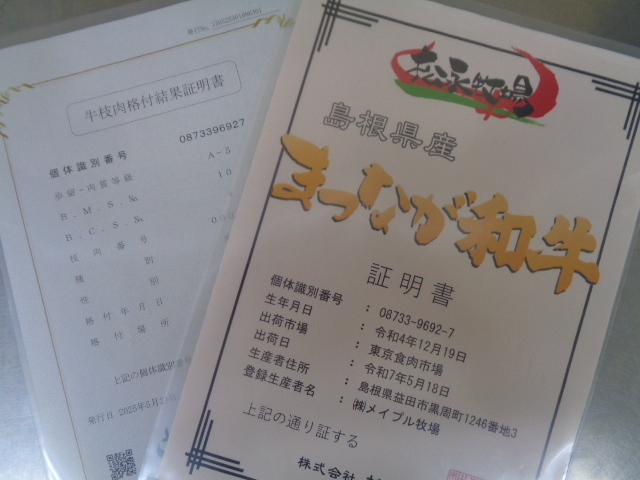 牛枝肉格付結果証明書
個体識別番号 0873396927
歩留・肉質等級 A-5
B.M.S.№ 10
B.C.S.№
枝肉番号
種別
性別
格付年月日
格付場所
上記の個体識別番
発行日 2025年5月2
松永牧場
島根県産
まつなが和牛
証明書
個体識別番号 : 08733-9692-7
生年月日 : 令和4年12月19日
出荷市場 : 東京食肉市場
出荷日 : 令和7年5月18日
生産者住所 : 島根県益田市黒周町1246番地3
登録生産者名 : ㈱メイプル牧場
上記の通り証する
株式会社